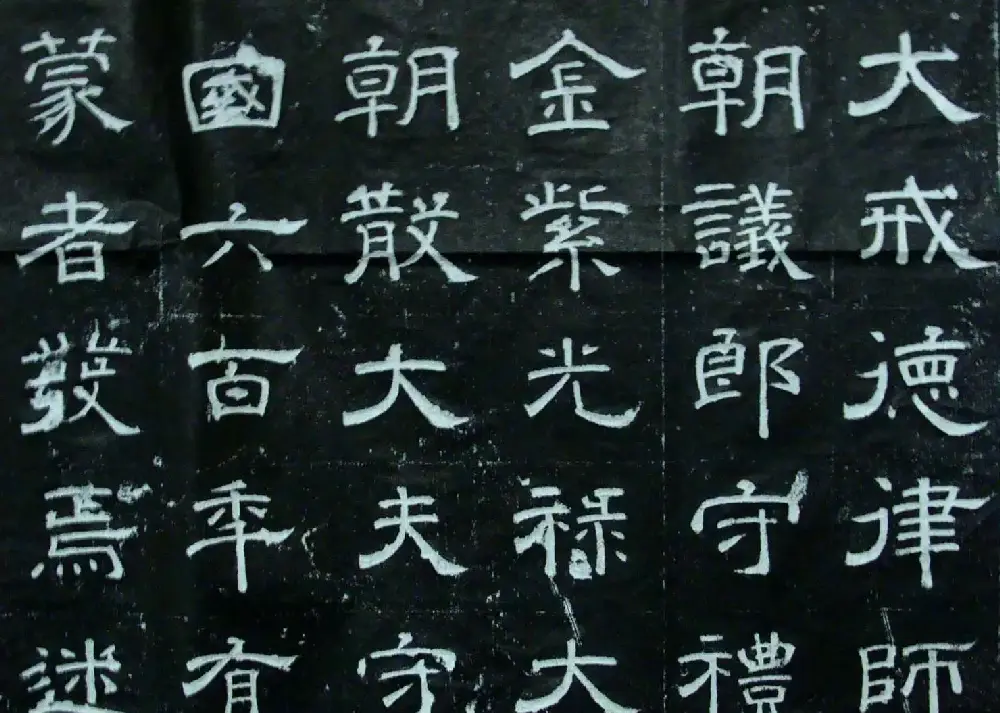 大戒德律師
朝議郎守禮
金紫光祿大
朝散大夫守
國六百年有
蒙者發焉迷